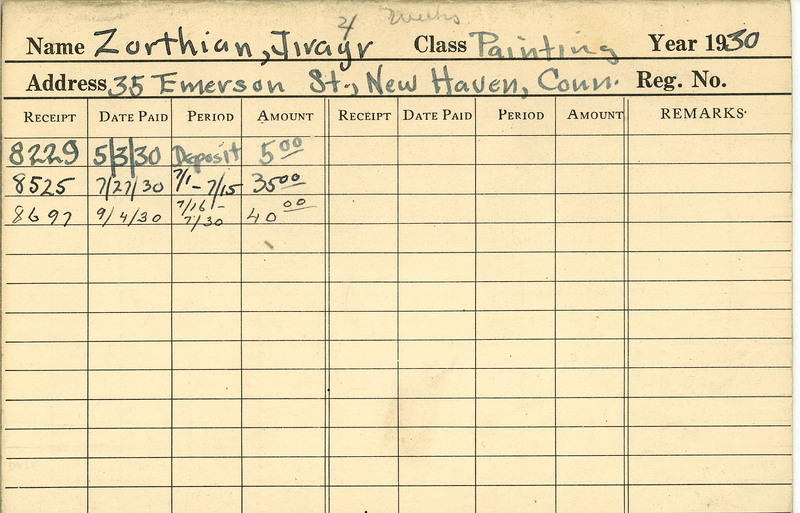 4 weeks
Name Zorthian, Jirayr Class Painting Year 1930
Address 35 Emerson St., New Haven, Conn. Reg. No.
RECEIPT DATE PAID PERIOD AMOUNT RECEIPT DATE PAID PERIOD AMOUNT REMARKS
8229 5/3/30 Deposit 5.00
8525 7/27/30 7/1 - 7/15 35.00
8697 9/4/30 7/16 - 7/30 40.00